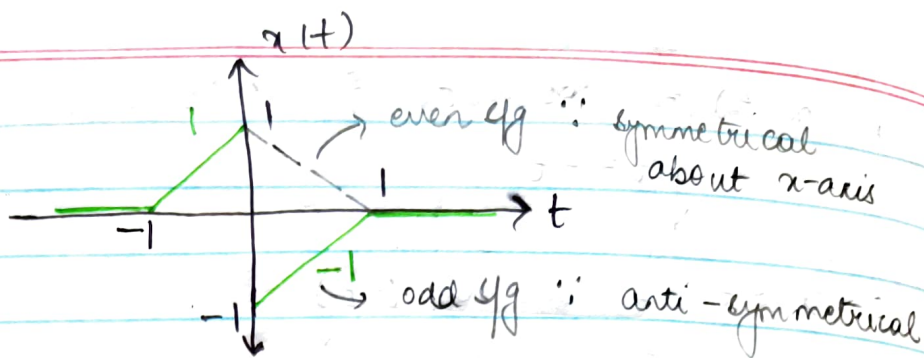 x(t)
1
1
even s/g ∵ symmetrical
about x-axis
1
-1
t
-1
odd s/g ∵ anti-symmetrical
-1